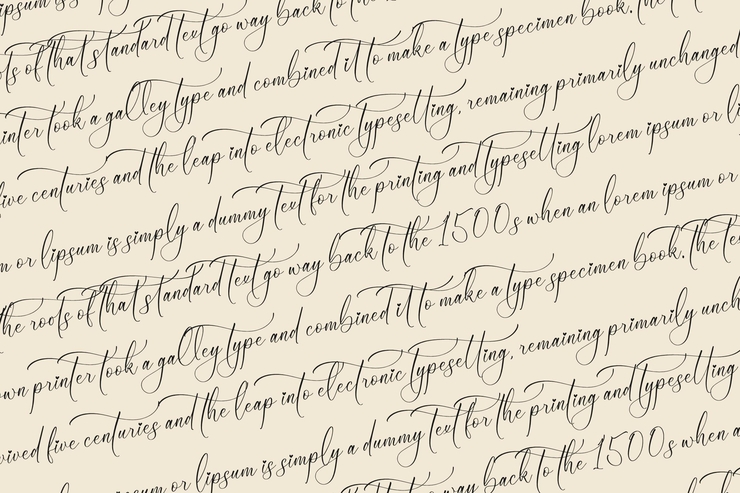 ipsum is
roots of that standard text go way back to the
printer took a galley type and combined it to make a type specimen book. the
five centuries and the leap into electronic typesetting, remaining primarily unchanged
or lipsum is simply a dummy text for the printing and typesetting lorem ipsum or
the roots of that standard text go way back to the 1500s when an lorem ipsum or
printer took a galley type and combined it to make a type specimen book. the
five centuries and the leap into electronic typesetting, remaining primarily
or lipsum is simply a dummy text for the printing and typesetting
way back to the 1500s when